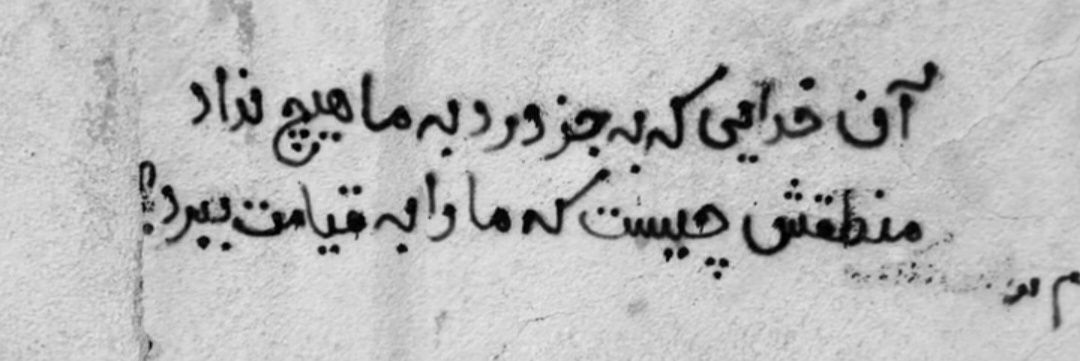 آن خدایی که به جز درد به ما هیچ نداد
منطقش چیست که ما را به قیامت ببرد!